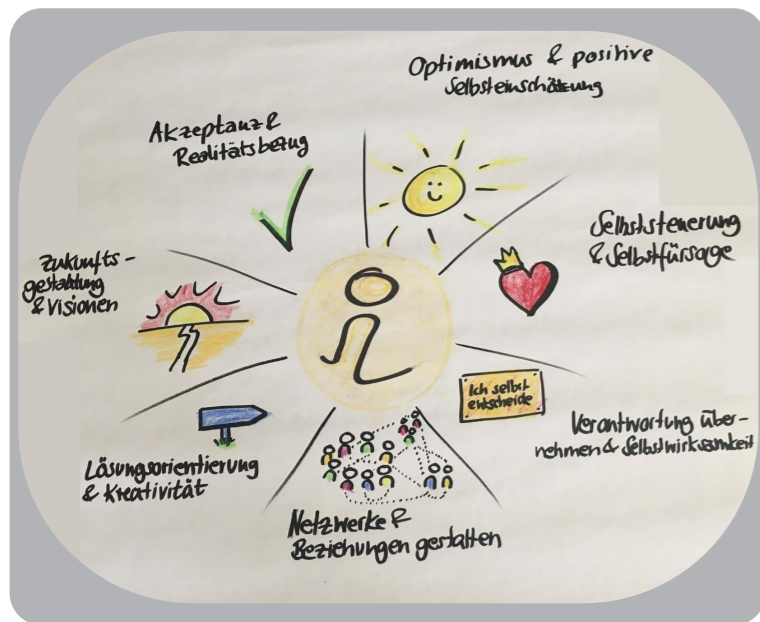 Optimismus & positive
Selbsteinschätzung
Akzeptanz &
Realitätsbezug
Selbststeuerung
& Selbstfürsorge
Zukunfts-
gestaltung
& Visionen
Ich selbst
entscheide
Verantwortung über-
nehmen & Selbstwirksamkeit
Lösungsorientierung
& Kreativität
Netzwerke &
Beziehungen gestalten